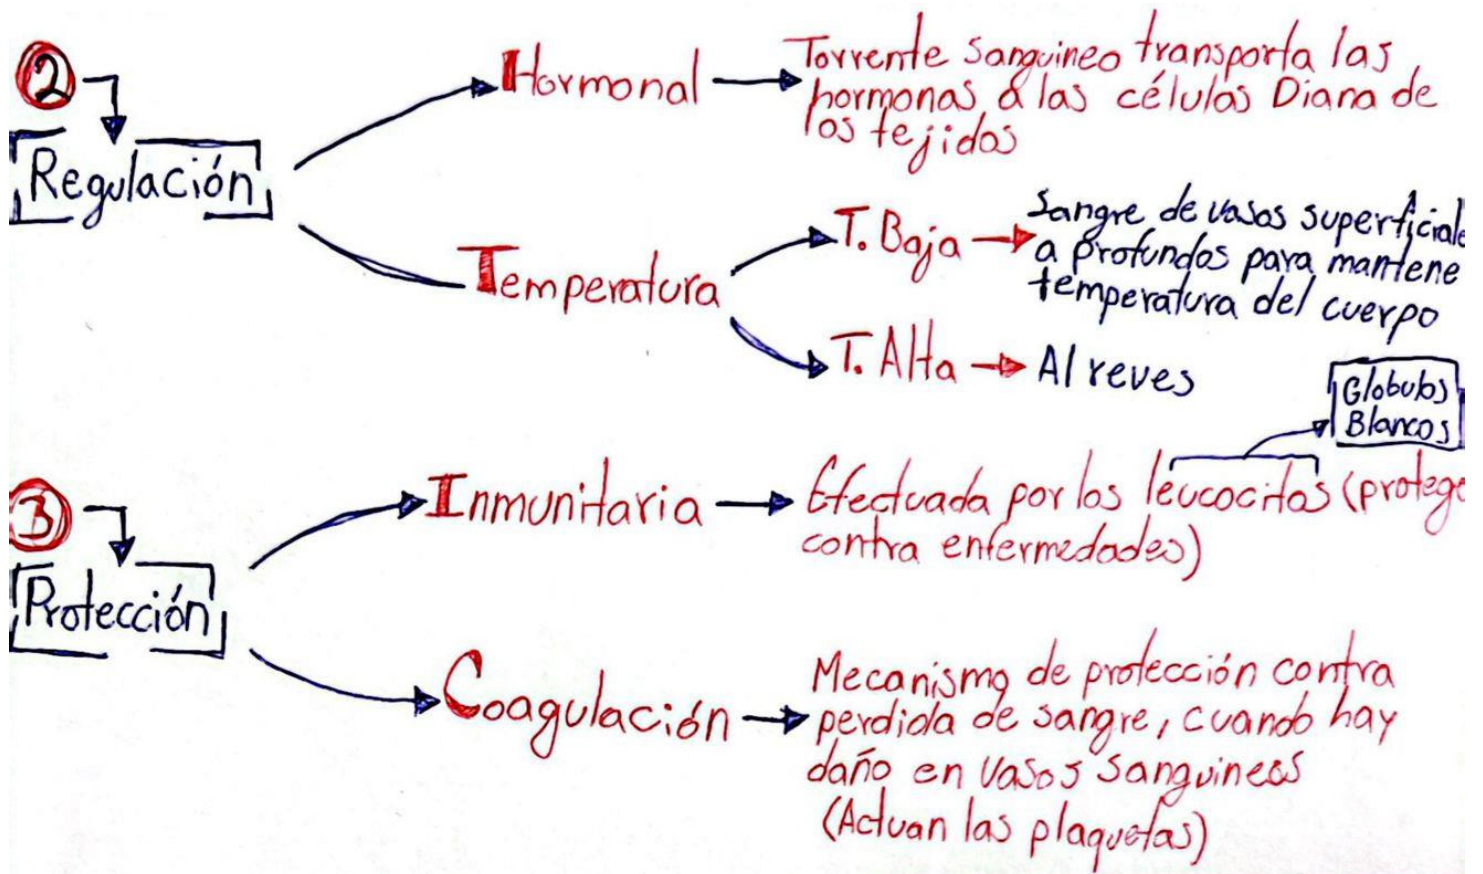 2
Regulación
Hormonal
Torrente sanguineo transporta las
hormonas a las células Diana de
los tejidos
Temperatura
T. Baja
Sangre de vasos superficiale
a profundos para mantene
temperatura del cuerpo
T. Alta
Al reves
Globulos
Blancos
3
Protección
Inmunitaria
Efectuada por los leucocitos (protege
contra enfermedades)
Coagulación
Mecanismo de protección contra
perdida de sangre, cuando hay
daño en vasos sanguineos
(Actuan las plaquetas)